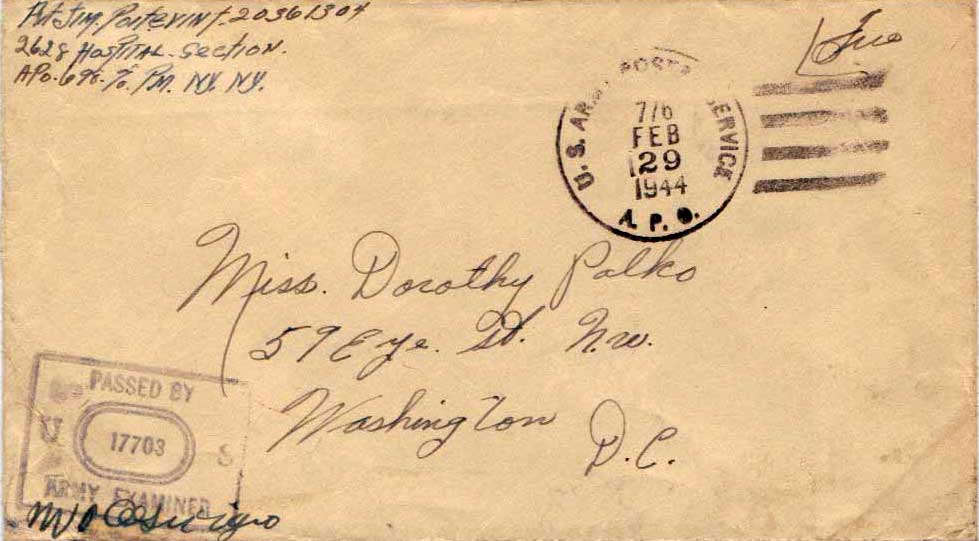 Pvt Jim. Poitevint. 20361304
2628 Hospital. Section.
APO. 698. % P.M. N.Y. N.Y.
Free
U.S. ARMY POSTAL SERVICE
7/6
FEB
29
1944
A.P.O.
Miss. Dorothy Palko
59 Eye. St. N.W.
Washington
D.C.
PASSED BY
U 17703 S
ARMY EXAMINER